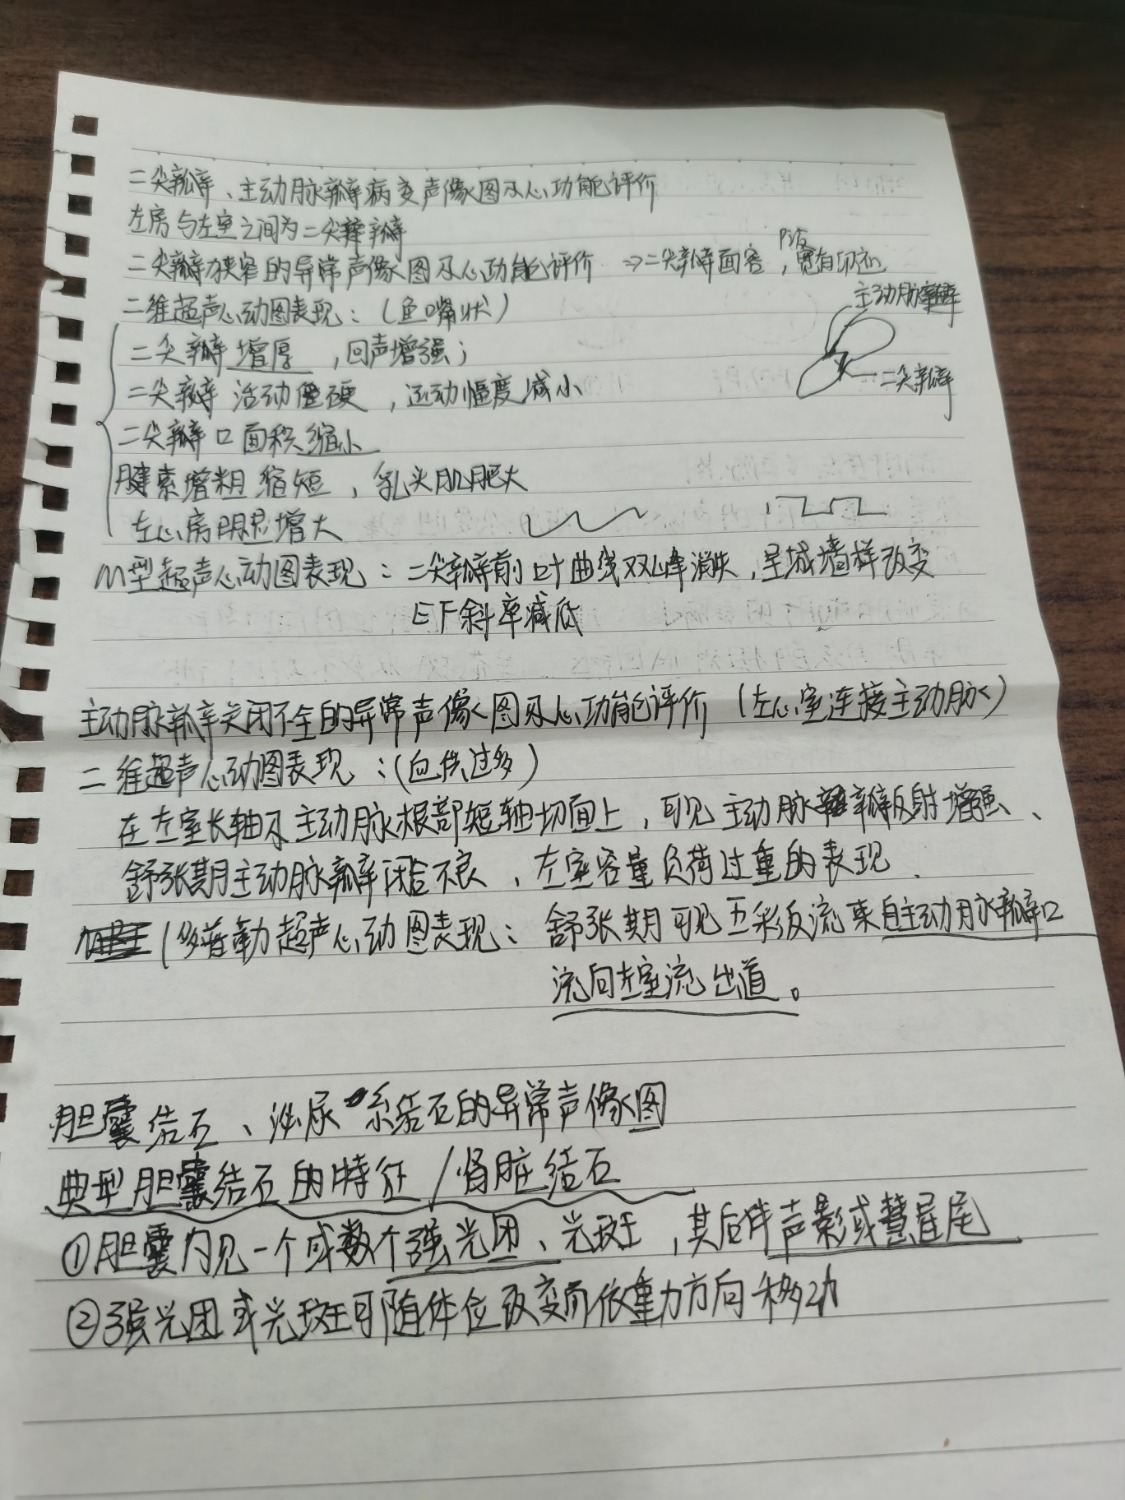 二尖瓣、主动脉瓣病变声像图及心功能评价
左房与左室之间为二尖瓣
二尖瓣狭窄的异常声像图及心功能评价 → 二尖瓣面容,
二维超声心动图表现:(鱼嘴状)
主动脉瓣
二尖瓣增厚,回声增强;
二尖瓣
二尖瓣活动僵硬,运动幅度减小
二尖瓣口面积缩小
腱索增粗缩短,乳头肌肥大
左心房明显增大
M型超声心动图表现:二尖瓣前叶曲线双峰消失,呈城墙样改变
EF斜率减低
主动脉瓣关闭不全的异常声像图及心功能评价(左心室连接主动脉)
二维超声心动图表现:(血供过多)
在左室长轴及主动脉根部短轴切面上,可见主动脉瓣反射增强、
舒张期主动脉瓣闭合不良,左室容量负荷过重的表现.
多普勒超声心动图表现:舒张期可见五彩反流束自主动脉瓣口
流向左室流出道。
胆囊结石、泌尿系结石的异常声像图
典型胆囊结石的特征/肾脏结石
①胆囊内见一个或数个强光团、光斑,其后伴声影或彗星尾
②强光团或光斑可随体位改变而依重力方向移动